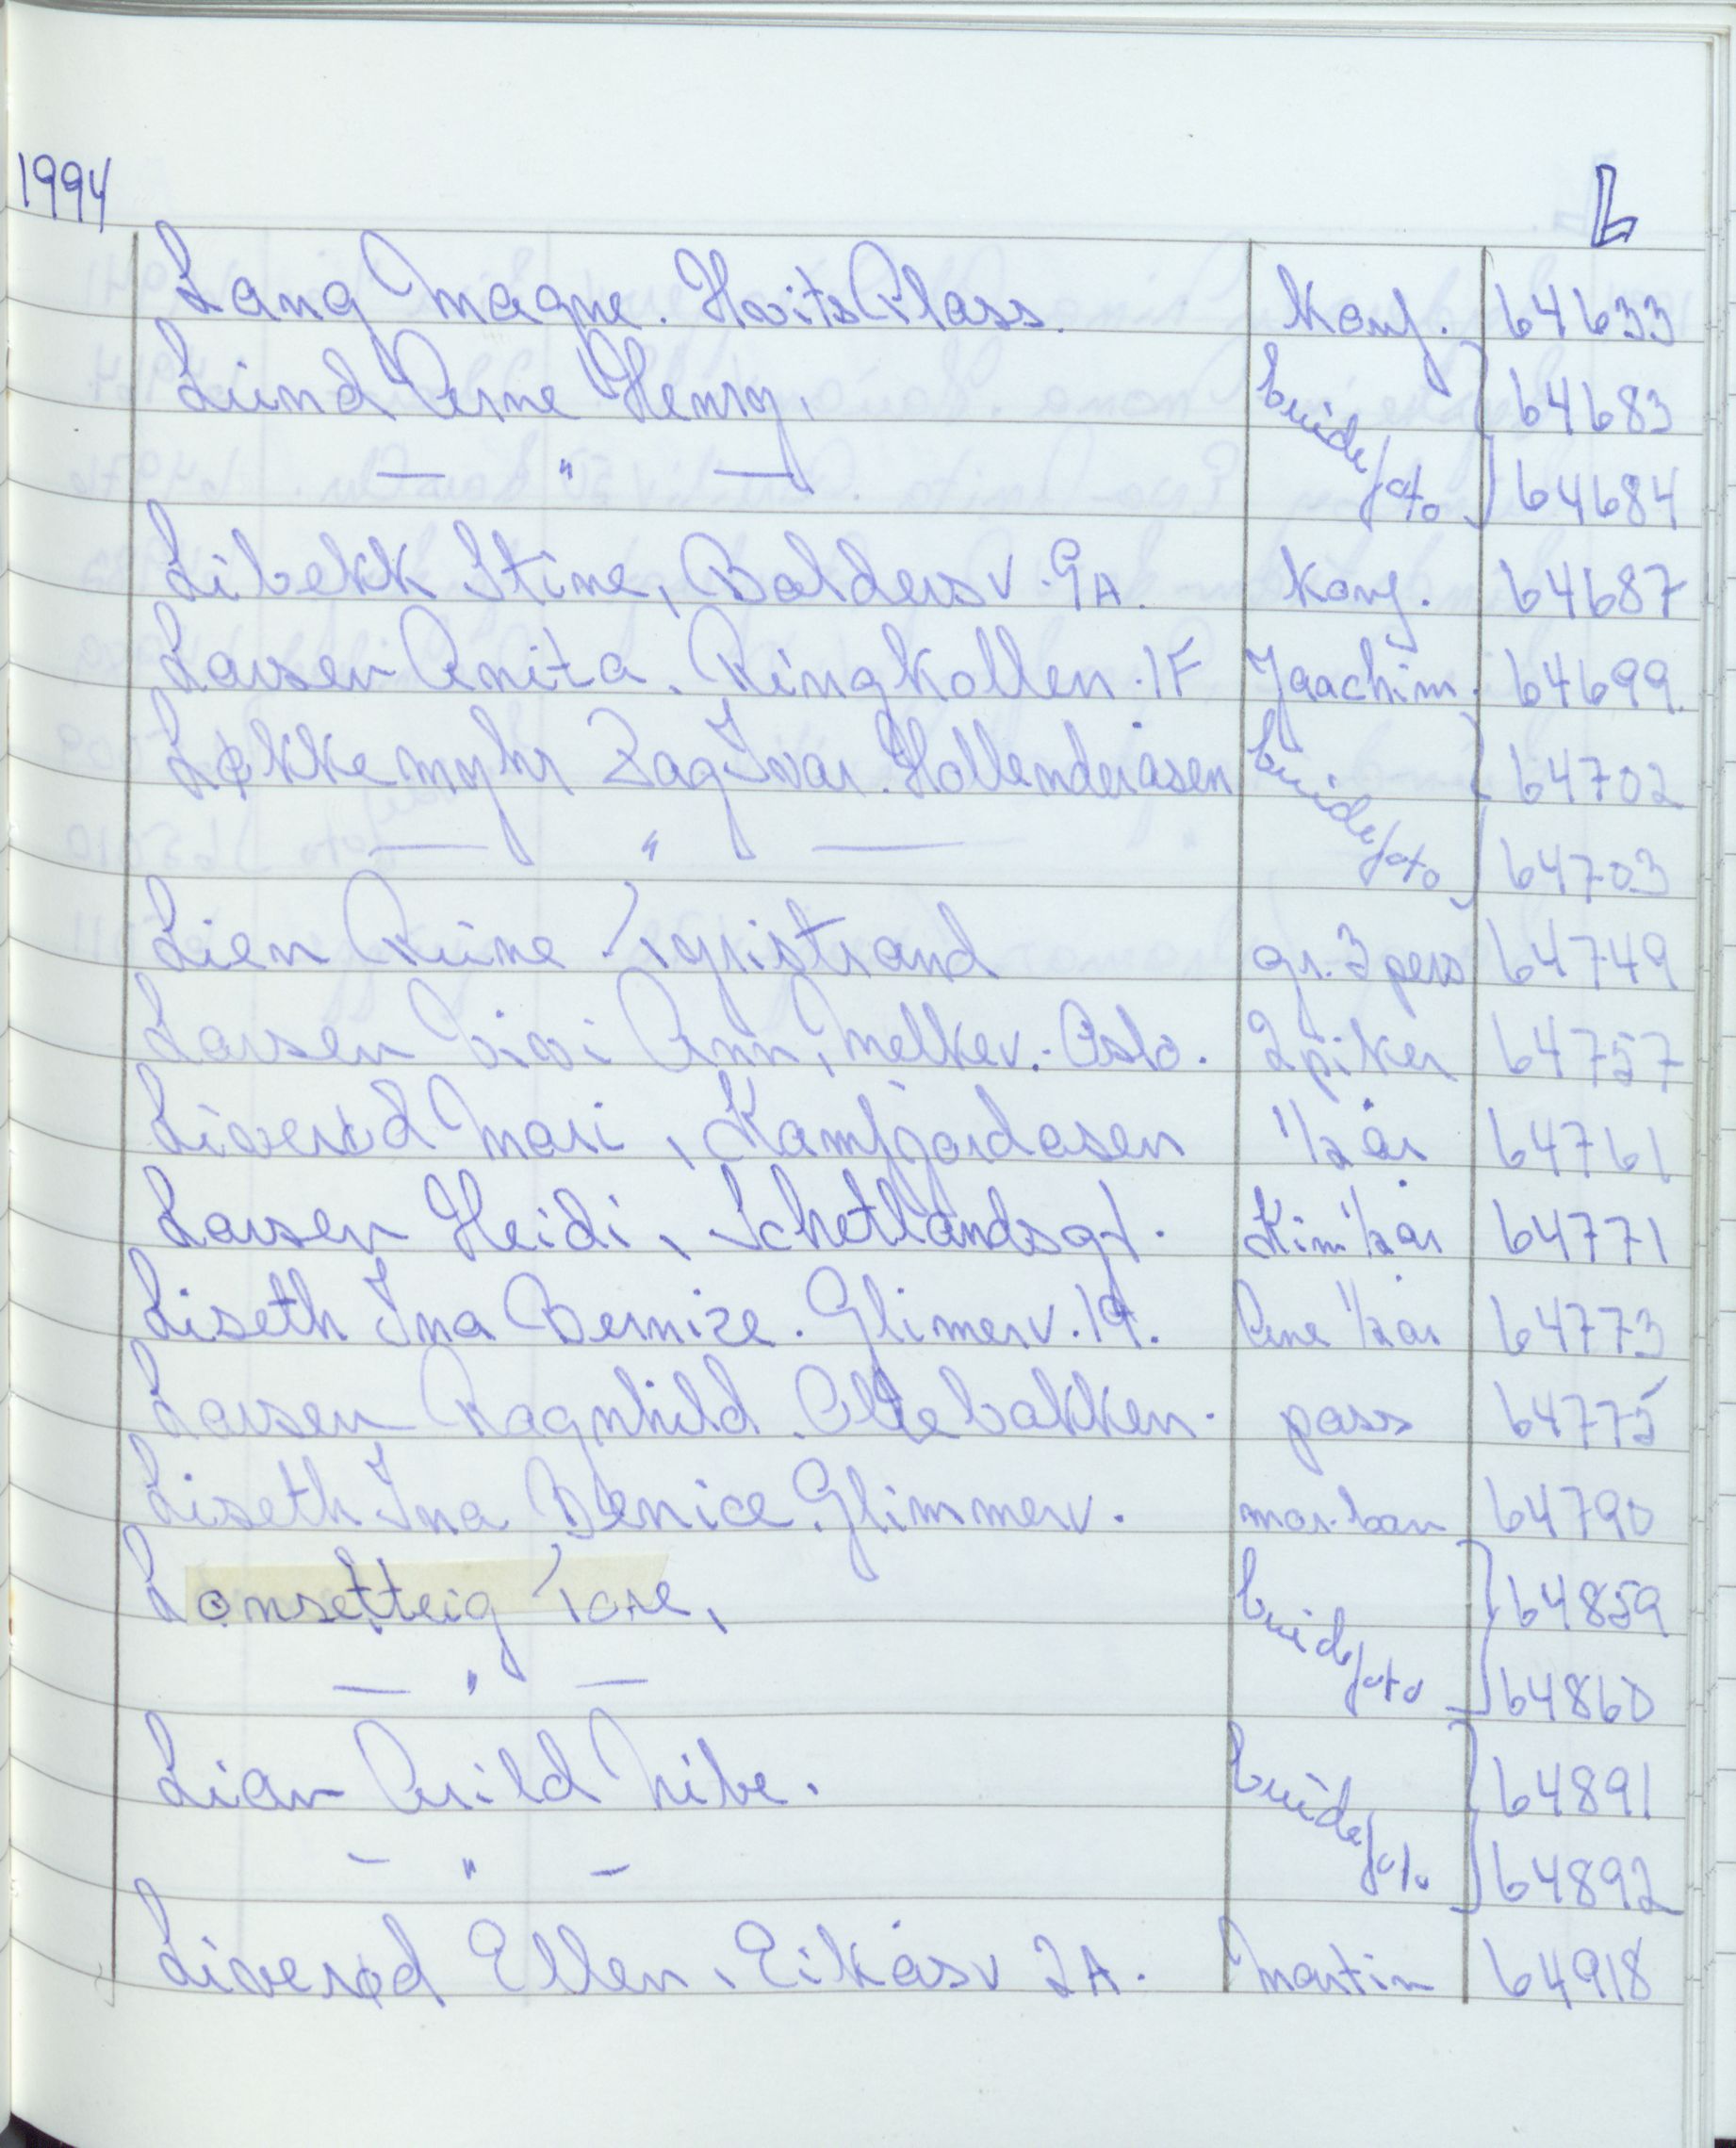 1994 L
Lang Magne. Hvitts Plass. Konf. 64633
Lund Arne Henry, brudefoto 64683
— " — 64684
Libekk Stine, Baldersv. 9A. Konf. 64687
Larsen Anita. Ringkollen. 1F Joachim. 64699.
Løkkemyhr Dag Ivar. Hollenderåsen brudefoto 64702
— " — 64703
Lien Rune Tyristrand gr. 3 pers 64749
Larsen Vivi Ann, Melkev. Oslo. 2 piker 64757
Liverød Mari, Kamfjordåsen 1/2 år 64761
Larsen Heidi, Schetlandsgt. Kim 1/2 år 64771
Liseth Ina Bernice. Glimerv. 19. Ane 1/2 år 64773
Larsen Ragnhild. Ollebakken. pass 64775
Liseth Ina Benice. Glimmerv. mor-barn 64790
Lomsetteig Tore, brudefoto 64859
— " — 64860
Lian Arild Vibe. brudefoto 64891
— " — 64892
Liverød Ellen, Eikåsv 2A. Martin 64918